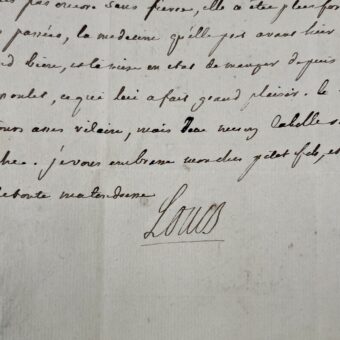 pas encore sans fievre, elle a été plus for
passées, la medecine qu'elle prit avant hier
bien, et la mise en etat de manger depuis
poulet, ce qui lui a fait grand plaisir. le
assés vilaine, mais
je vous embrasse mon cher petit fils, et
toute ma tendresse
Louis